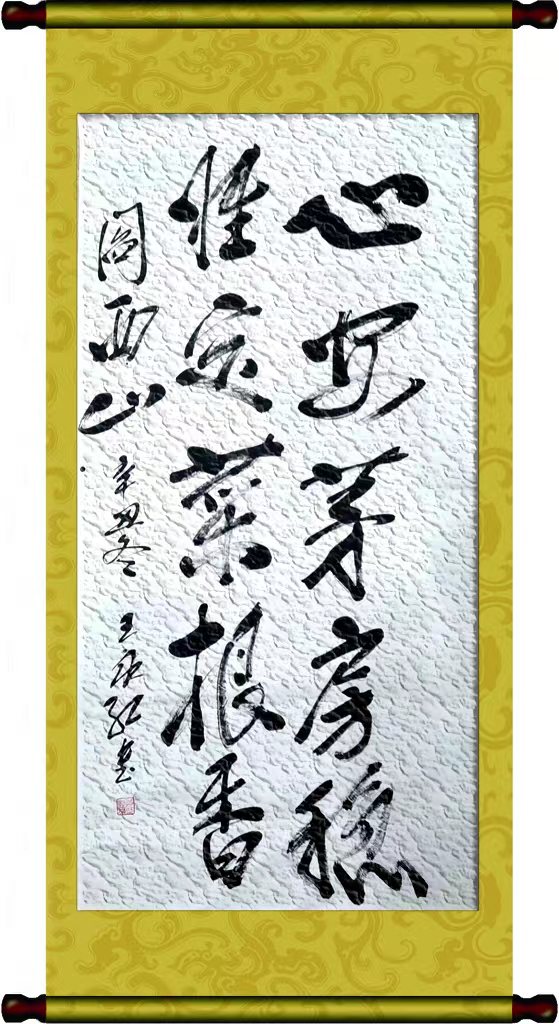 心安茅房稳
性定菜根香
阎西山 辛丑冬 王红书